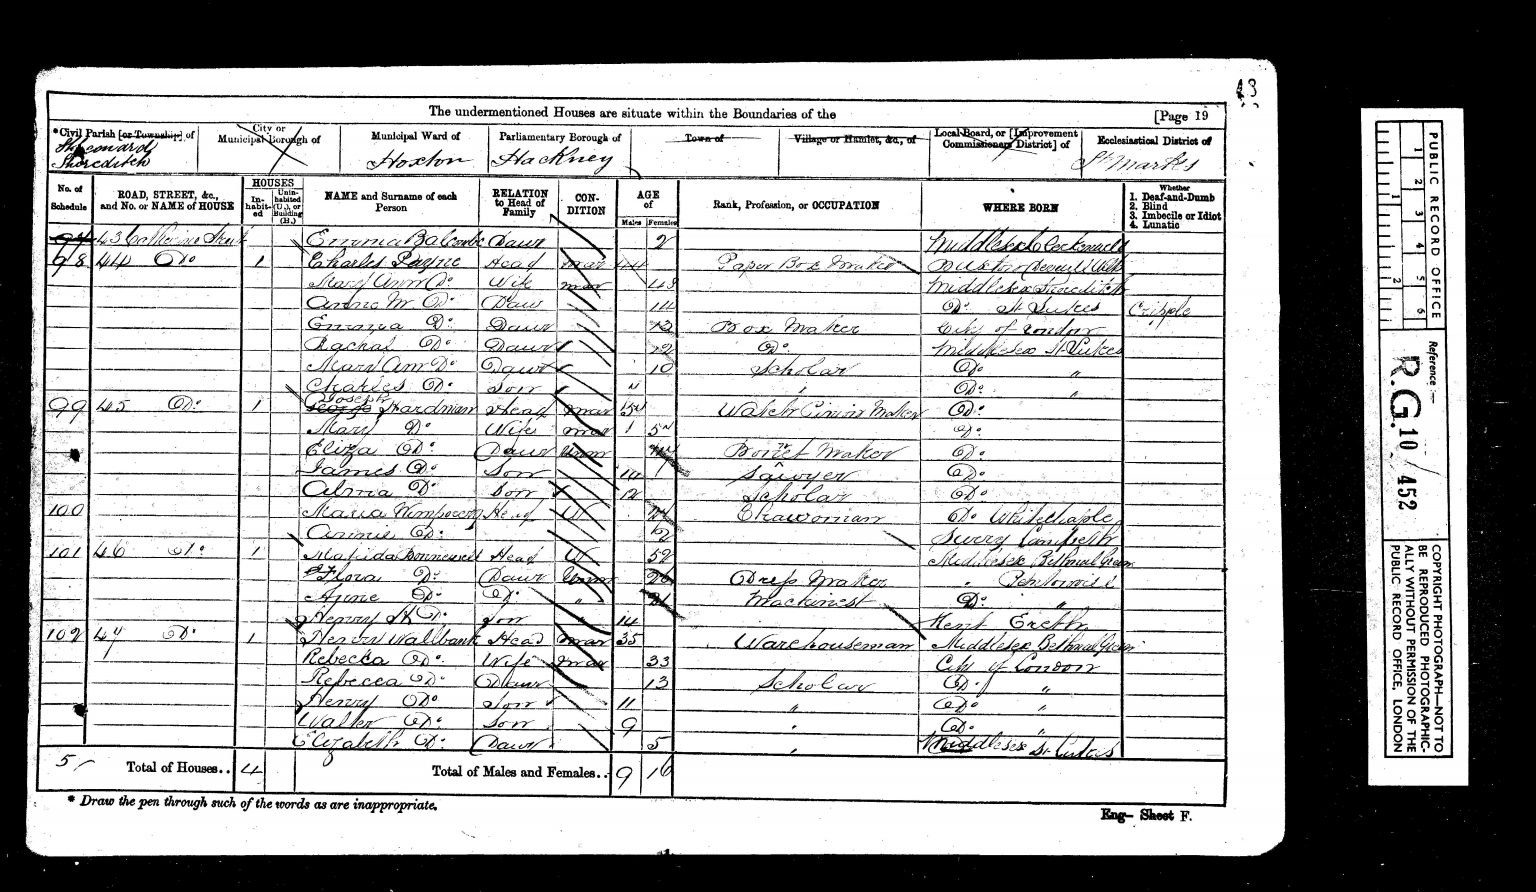 43
The undermentioned Houses are situate within the Boundaries of the
[Page 19
*Civil Parish [or Township] of
St Leonard
Shoreditch
City or
Municipal Borough of
Municipal Ward of
Hoxton
Parliamentary Borough of
Hackney
Town of
Village or Hamlet, &c., of
Local Board, or [Improvement
Commissioners District] of
Ecclesiastical District of
St Marks
No. of
Schedule
ROAD, STREET, &c.,
and No. or NAME of HOUSE
HOUSES
In-
habit-
ed
Unin-
habited
(U.), or
Building
(B.)
NAME and Surname of each
Person
RELATION
to Head of
Family
CON-
DITION
AGE
of
Males Females
Rank, Profession, or OCCUPATION
WHERE BORN
Whether
1. Deaf-and-Dumb
2. Blind
3. Imbecile or Idiot
4. Lunatic
43 Catherine Street Emma Balcombe Daur 2 Middlesex Clerkenwell
98 44 Do 1 Charles Payne Head mar 44 Paper Box Maker
Mary Ann Do Wife mar 43 Middlesex Shoreditch
Anna M. Do Daur 14 Do St Lukes Cripple
Emma Do Daur Box Maker City of London
Rachal Do Daur 12 Do Middlesex St Lukes
Mary Ann Do Daur 10 Scholar Do "
Charles Do Son " Do "
99 45 Do 1 Joseph Hardman Head mar Watch Pinion Maker Do
Mary Do Wife mar Do
Eliza Do Daur Unm Bonnet Maker Do
James Do Son 14 Sawyer Do
Alma Do Son 12 Scholar Do
100 Maria Head W Chawoman Do Whitechaple
Annie Do Surry
101 46 Do 1 Matilda Bonnewell Head W 52 Middlesex Bethnal Green
Flora Do Daur Unm 26 Dress Maker " Pentonvill
Anne Do Do " 21 Machinest Do "
Henry H Do Son 14 Kent Erith
102 47 Do 1 Henry Wallbank Head mar 35 Warehouseman Middlesex Bethnal Green
Rebecca Do Wife mar 33 City of London
Rebecca Do Daur 13 Scholar Do "
Henry Do Son 11 " Do "
Walter Do Son 9 " Do "
Elizabeth Do Daur 5 " Middlesex St Lukes
5 Total of Houses.. 4 Total of Males and Females.. 9 16
* Draw the pen through such of the words as are inappropriate.
Eng– Sheet F.
PUBLIC RECORD OFFICE
1 2 3 4 5 6
1 2
Reference:—
R.G. 10 / 452
COPYRIGHT PHOTOGRAPH—NOT TO
BE REPRODUCED PHOTOGRAPHIC-
ALLY WITHOUT PERMISSION OF THE
PUBLIC RECORD OFFICE, LONDON